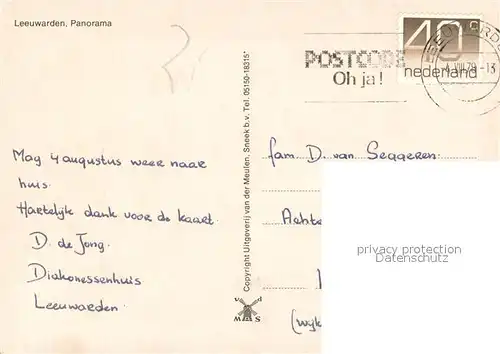 Leeuwarden, Panorama
POSTCODE
Oh ja!
40c
nederland
VIII.79-13
May 4 augustus weer naar
huis.
Hartelijk dank voor de kaart.
D. de Jong.
Diakonessenhuis
Leeuwarden.
Copyright Uitgeverij van der Meulen, Sneek b.v. Tel. 05150-18315*
v d
M S
fam. D. van Seggeren.
Achte
(wijk
privacy protection
Datenschutz